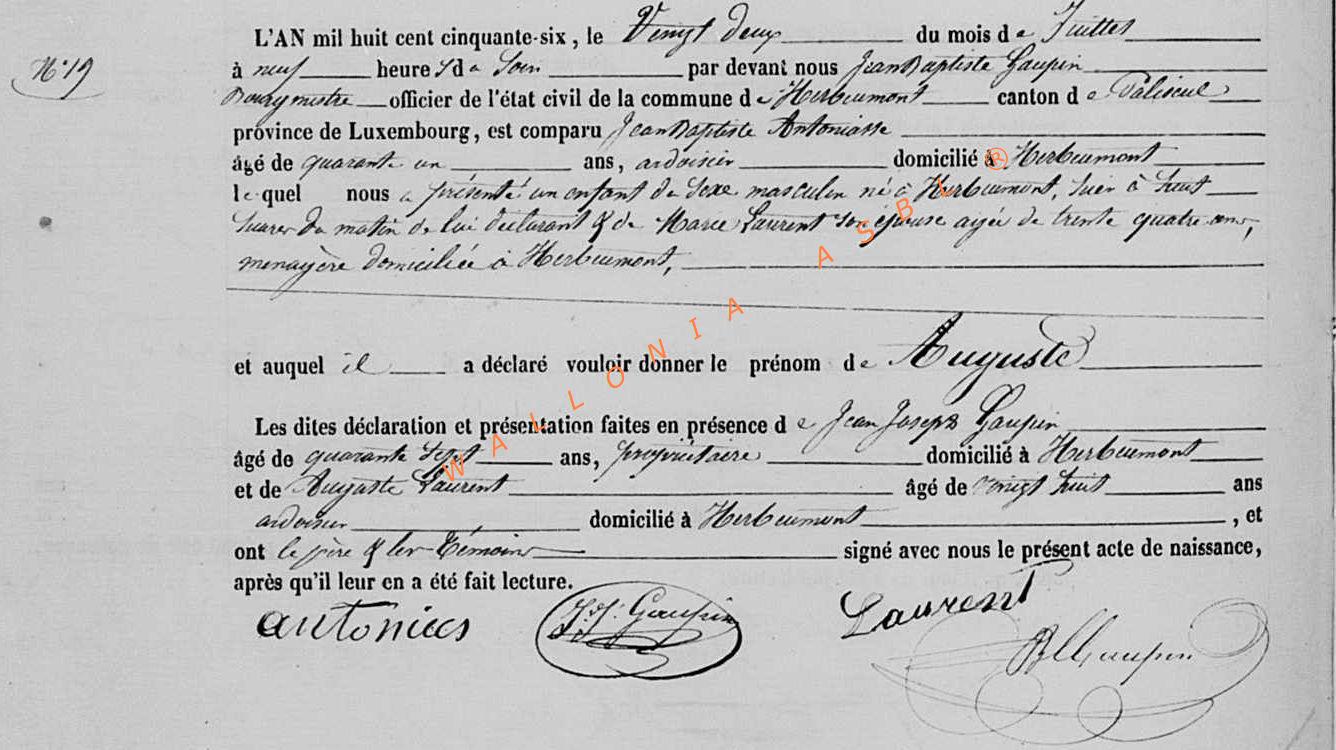 N° 19
L'AN mil huit cent cinquante-six, le Vingt deux du mois de Juillet
à neuf heures du Soir par devant nous Jean Baptiste Gaupin
Bourgmestre officier de l'état civil de la commune de Herbeumont canton de Paliseul
province de Luxembourg, est comparu Jean Baptiste Antoniasse
âgé de quarante un ans, ardoisier domicilié à Herbeumont
lequel nous a présenté un enfant du Sexe masculin né à Herbeumont, hier à huit
heures du matin de lui déclarant & de Marie Laurent son épouse agée de trente quatre ans,
menagère domiciliée à Herbeumont,
et auquel il a déclaré vouloir donner le prénom de Auguste
Les dites déclaration et présentation faites en présence de Jean Joseph Gaupin
âgé de quarante Sept ans, propriétaire domicilié à Herbeumont
et de Auguste Laurent âgé de vingt huit ans
ardoisier domicilié à Herbeumont, et
ont le père & les témoins signé avec nous le présent acte de naissance,
après qu'il leur en a été fait lecture.
antonies J.J. Gaupin Laurent
Gaupin
WALLONIA ASBL ®